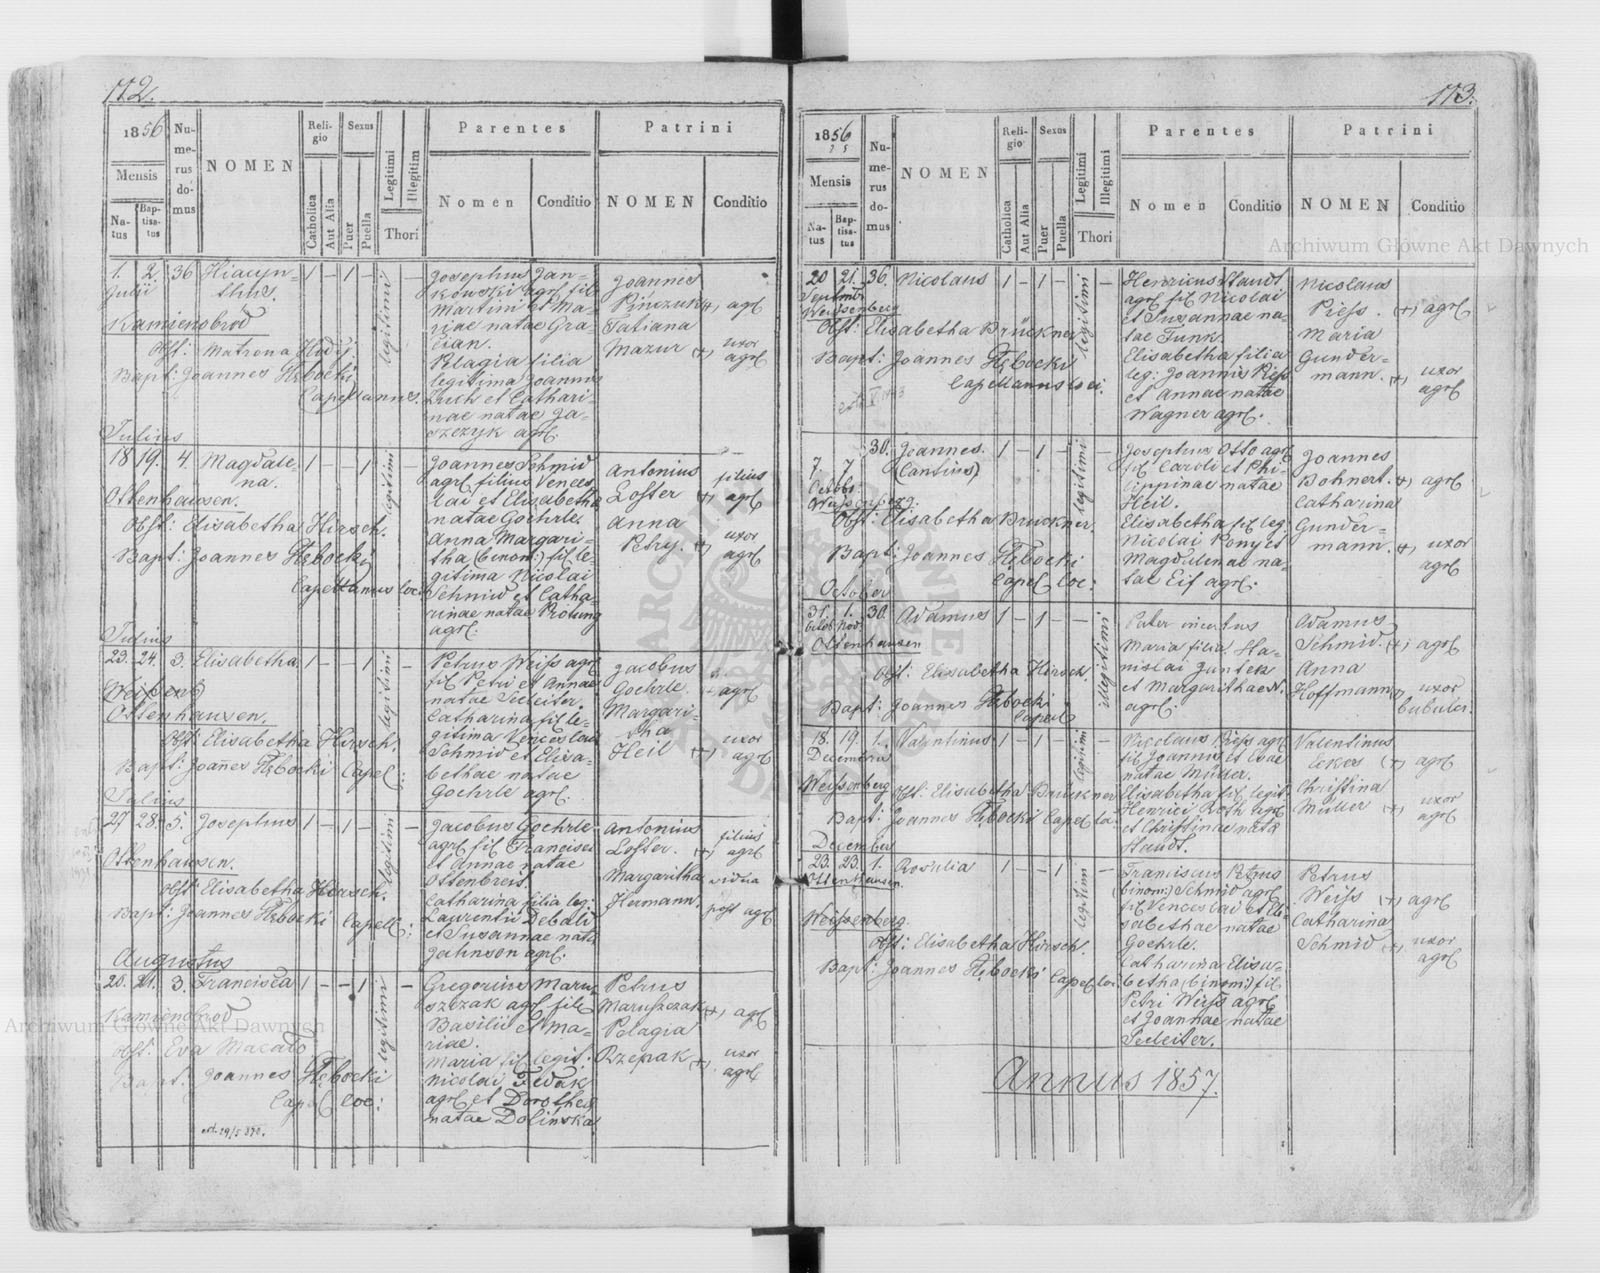 172.
1856
Mensis
Na-
tus
Bap-
tisa-
tus
Nu-
me-
rus
do-
mus
NOMEN
Reli-
gio
Catholica
Aut Alia
Sexus
Puer
Puella
Legitimi
Illegitim
Thori
Parentes
Nomen
Conditio
Patrini
NOMEN
Conditio
1. 2 36 Hiacyn- 1 – 1 –
Julii thus.
Kamienobrod
Obst: Matrona
Bapt: Joannes Hłębocki
Capellanus.
legitimi
Josephus Jan-
kowski agrl fil
Martini et Ma-
riae natae Gra-
cian.
Pelagia filia
legitima Joannis
Luch et Cathari-
nae natae Ja-
szczyk agrl.
Joannes
Pinczuk (+) agrl
Tatiana
Mazur (+) uxor
agrl
Julius
18 19. 4. Magdale- 1 – – 1
na.
Ottenhausen.
Obst: Elisabetha Hirsch.
Bapt: Joannes Hłębocki
Capellanus loc:
legitimi
Joannes Schmid
agrl filius Vences
lai et Elisabetha
natae Goehrle.
Anna Margari-
tha (binom:) fil le-
gitima Nicolai
Schmid et Catha
rinae natae Rotung
agrl:
Antonius
Loster (+) filius
agrl
Anna
Petry. (+) uxor
agrl
Julius
23. 24. 3. Elisabetha 1 – – 1 –
Ottenhausen.
Obst: Elisabetha Hirsch.
Bapt: Joañes Hłębocki Capel:
legitimi
Petrus Weiss agrl
fil Petri et Annae
natae Seeleiter.
Catharina fil le-
gitima Venceslai
Schmid et Elisa-
bethae natae
Goehrle agrl.
Jacobus
Goehrle. agrl
Margari-
tha
Heil (+) uxor
agrl
Julius
27 28. 5. Josephus 1 – 1 – –
Ottenhausen.
Obst: Elisabetha Hirsch.
Bapt: Joannes Hłębocki Capell:
legitimi
Jacobus Goehrle
agrl fil Francisci
et Annae natae
Ottenbreit.
Catharina filia leg:
Laurentii Debald
et Susannae nata
Jahnson agrl.
Antonius
Loster. (+) filius
agrl
Margaritha
Hermann. vidua
post agrl
Augustus
20. 21. 3. Francisca 1 – – 1 –
Kamienobrod
Obst: Eva
Bapt: Joannes Hłębocki
Capel loc:
legitimi
Gregorius Marus
szczak agrl file
Basilii et Ma-
riae.
Maria fil legit:
Nicolai Fedak
agrl et Dorothea
natae Dolinska
Petrus
Maruszczak (+) agrl
Pelagia
Rzepak (+) uxor
agrl
173.
1856
Mensis
Na-
tus
Bap-
tisa-
tus
Nu-
me-
rus
do-
mus
NOMEN
Reli-
gio
Catholica
Aut Alia
Sexus
Puer
Puella
Legitimi
Illegitimi
Thori
Parentes
Nomen
Conditio
Patrini
NOMEN
Conditio
20 21. 36. Nicolaus 1 – 1 – –
Weissenberg
Obst: Elisabetha Brückner
Bapt: Joannes Hłębocki
Capellanus loci.
legitimi
Henricus Staudt
agrl fil Nicolai
et Susannae na-
tae Funk.
Elisabetha filia
leg: Joannis Riess
et Annae natae
Wagner agrl.
Nicolaus
Piess. (+) agrl
Maria
Gunder-
mann. (+) uxor
agrl
30. Joannes. 1 – 1 – –
7 7 (Cantius)
Octobr.
Weissenberg.
Obst: Elisabetha Bruckner.
Bapt: Joannes Hłębocki
Capel loc:
legitimi
Josephus Otto agrl
fil Caroli et Phi-
lippinae natae
Heil.
Elisabetha fil leg
Nicolai Kony et
Magdalenae na-
tae Eis agrl.
Joannes
Bohnert. (+) agrl
Catharina
Gunder-
mann. (+) uxor
agrl
October
31. 1. 30. Adamus 1 – 1 – –
Ottenhausen
Obst: Elisabetha Hirsch.
Bapt: Joannes Hłębocki
Capel
illegitimi
Pater incertus
Maria filia Sta-
nislai
et Margarithae N.
agrl.
Adamus
Schmid. (+) agrl
Anna
Hoffmann (+) uxor
bubulci.
18. 19. 1. Valentinus. 1 – 1 – –
Decembris
Weissenberg Obst: Elisabetha Bruckner
Bapt: Joannes Hłębocki Capel loc:
legitimi
Nicolaus Riess agrl
fil Joannis et Evae
natae Müller.
Elisabetha fil legit
Henrici Roth agrl
et Christinae nata
Staudt.
Valentinus
(+) agrl
Christina
Müller (+) uxor
agrl
December
23. 23. 1. Rosalia 1 – – 1 –
Ottenhausen.
Weissenberg.
Obst: Elisabetha Hirsch.
Bapt: Joannes Hłębocki Capel loc:
legitimi
Franciscus Petrus
(binom:) Schmid agrl
fil Venceslai et Eli
sabethae natae
Goehrle.
Catharina Elisa-
betha (binom:) fil
Petri Weiss agrl
et Joannae natae
Seeleiter.
Petrus
Weiss (+) agrl
Catharina
Schmid (+) uxor
agrl
Annus 1857.
Archiwum Główne Akt Dawnych
Archiwum Główne Akt Dawnych